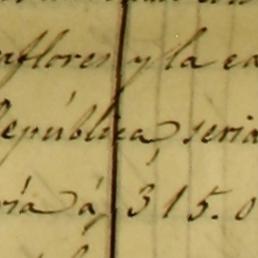 aflores y la ca
República seria
ria á, 315.0